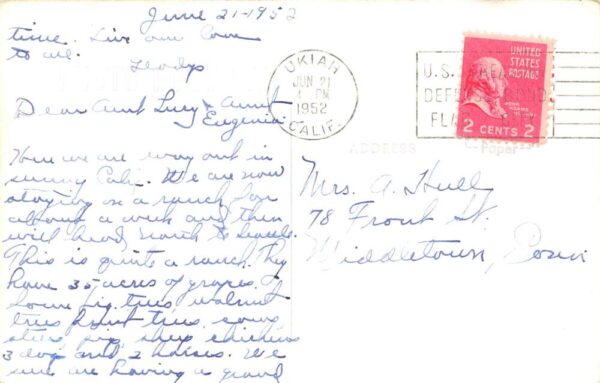 June 21-1952
time. Live our
to all.
Gladys
Dear Aunt Lucy & Aunt
Eugenia
Here we are way out in
sunny Cali. We are now
staying on a ranch for
about a week and then
will head north to
This is quite a ranch. They
have 35 acres of grapes.
some fig trees walnut
trees trees, cows
pig, sheep chickens
3 dog and 2 horses. We
sure are having a grand
UKIAH
JUN 21
PM
1952
CALIF.
U.S.
DEF
FL
UNITED
STATES
POSTAGE
JOHN ADAMS
2 CENTS 2
ADDRESS
Paper
Mrs. A. Hull
78 Front St.
Middletown, Conn